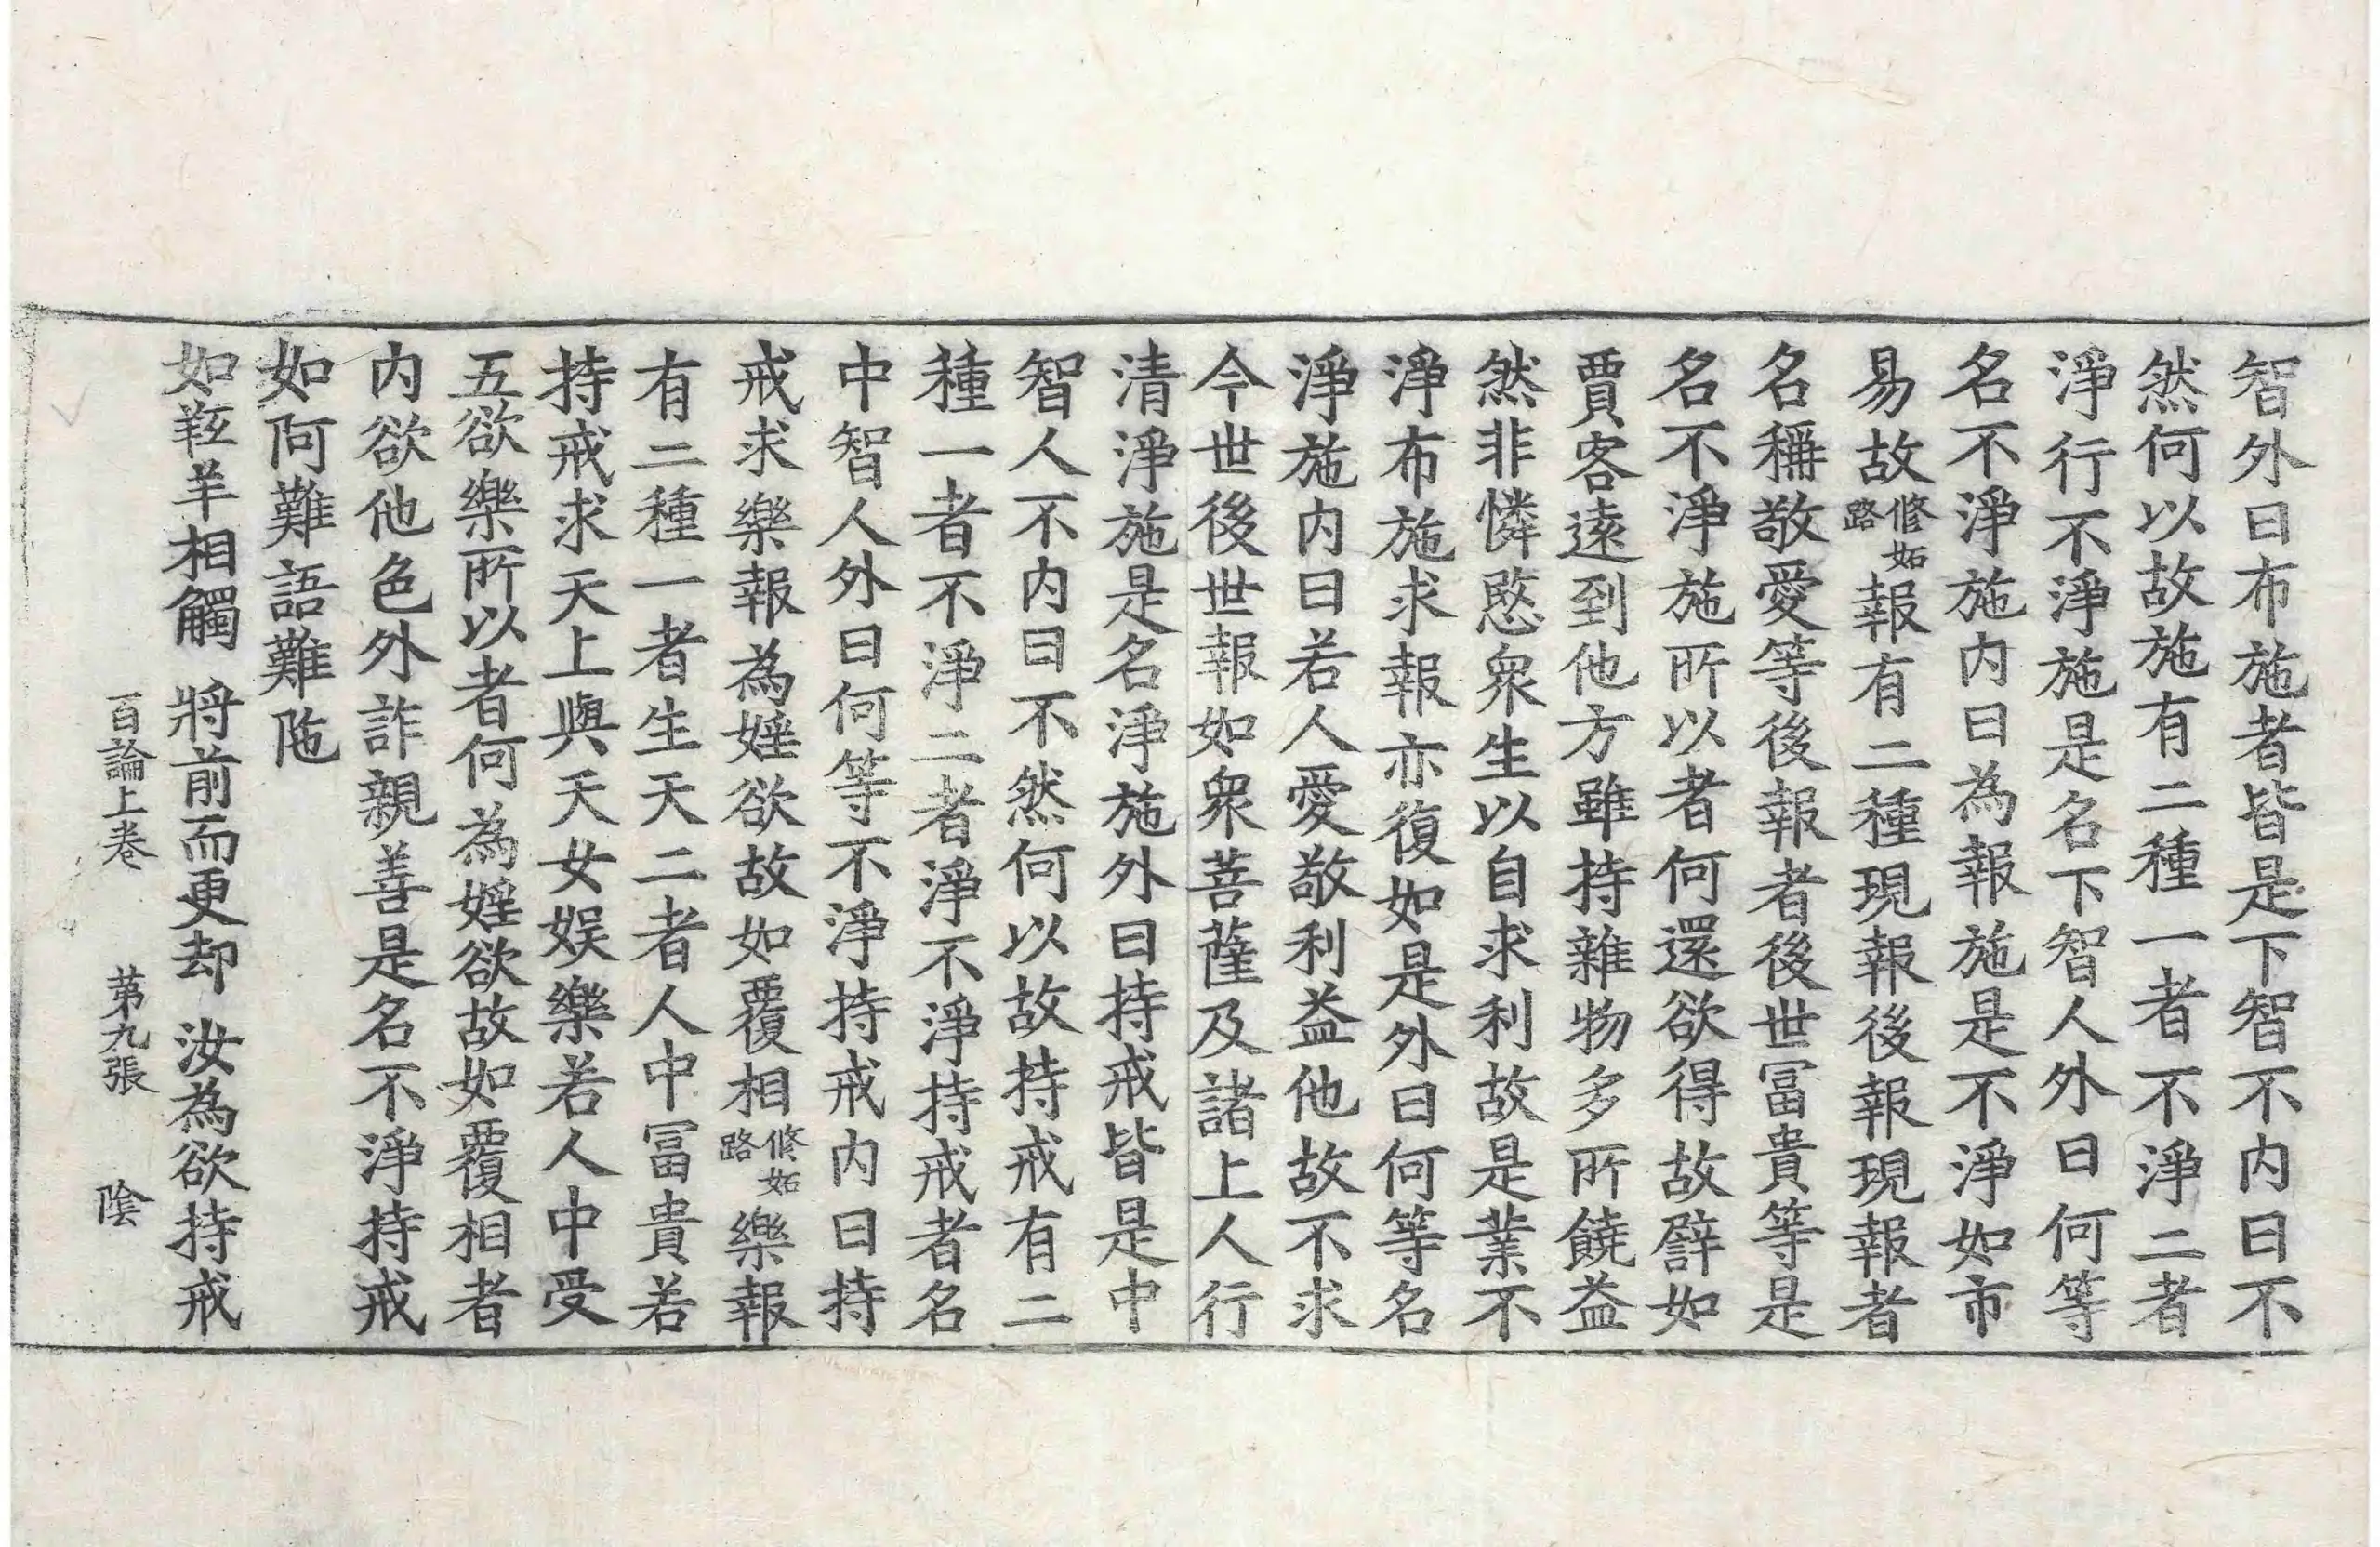 智外曰布施者皆是下智不内曰不
然何以故施有二種一者不淨二者
淨行不淨施是名下智人外曰何等
名不淨施内曰為報施是不淨如市
易故修妬路報有二種現報後報現報者
名稱敬愛等後報者後世冨貴等是
名不淨施所以者何還欲得故譬如
賈客遠到他方雖持雜物多所饒益
然非憐愍衆生以自求利故是業不
淨布施求報亦復如是外曰何等名
淨施内曰若人愛敬利益他故不求
今世後世報如衆菩薩及諸上人行
清淨施是名淨施外曰持戒皆是中
智人不内曰不然何以故持戒有二
種一者不淨二者淨不淨持戒者名
中智人外曰何等不淨持戒内曰持
戒求樂報為婬欲故如覆相修妬路樂報
有二種一者生天二者人中冨貴若
持戒求天上與天女娱樂若人中受
五欲樂所以者何為婬欲故如覆相者
内欲他色外詐親善是名不淨持戒
如阿難語難陁
如羝羊相觸 將前而更却 汝為欲持戒
百論上卷 第九張 陰